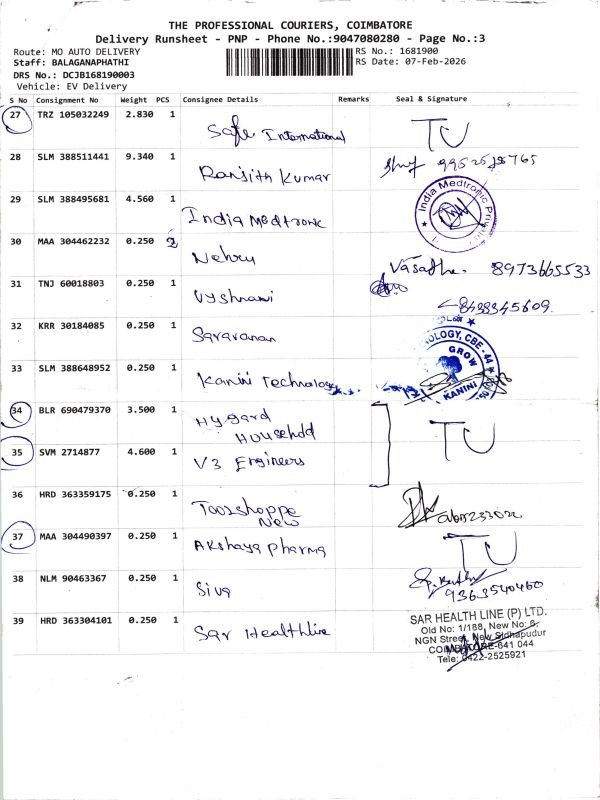 THE PROFESSIONAL COURIERS, COIMBATORE
Delivery Runsheet - PNP - Phone No.:9047080280 - Page No.:3
Route: MO AUTO DELIVERY
RS No.: 1681900
Staff: BALAGANAPHATHI
RS Date: 07-Feb-2026
DRS No.: DCJB168190003
Vehicle: EV Delivery
S No Consignment No Weight PCS Consignee Details Remarks Seal & Signature
27 TRZ 105032249 2.830 1 Safe International TU
28 SLM 388511441 9.340 1 Ranjith Kumar
29 SLM 388495681 4.560 1 India Medtronic India Medtronic Private
30 MAA 304462232 0.250 2 Nehru Vasatha. 8973665533
31 TNJ 60018803 0.250 1 Vyshnavi 8438345609
32 KRR 30184085 0.250 1 Saravanan
33 SLM 388648952 0.250 1 Kanini Technology
NOLOGY, CBE - 44
GROW
KANINI
34 BLR 690479370 3.500 1 Hygard Household
35 SVM 2714877 4.600 1 V3 Engineers TU
36 HRD 363359175 0.250 1 Toolshoppe New
37 MAA 304490397 0.250 1 Akshaya Pharma TU
38 NLM 90463367 0.250 1 Siva 9363540460
39 HRD 363304101 0.250 1 Sar Healthline
SAR HEALTH LINE (P) LTD.
Old No: 1/188, New No: 6,
NGN Street, New Sidhapudur
COIMBATORE-641 044
Tele: 0422-2525921